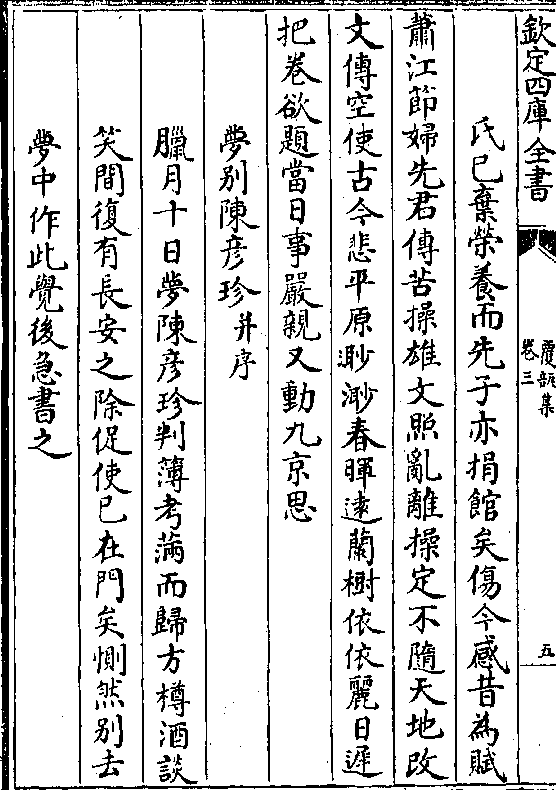 欽定四庫全書
覆瓿集
卷三
五
氏已棄榮養而先子亦捐館矣傷今感昔為賦
蕭江節婦先君傳苦操雄文照亂離操定不隨天地改
文傳空使古今悲平原渺渺春暉遠蘭樹依依麗日遲
把卷欲題當日事嚴親又動九京思
夢别陳彦珍并序
臘月十日夢陳彦珍判薄考滿而歸方樽酒談
笑間復有長安之除促使已在門矣惻然别去
夢中作此覺後急書之